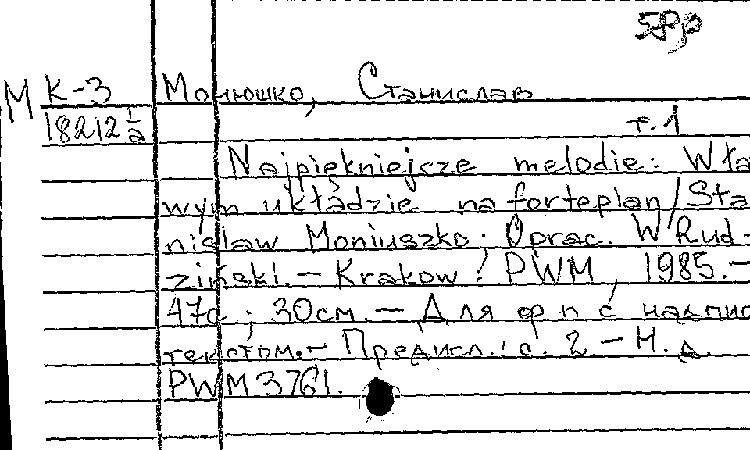 58р
М К-3 Монюшко, Станислав
18212 1/а т. 1
Najpiękniejsze melodie: W ła
wym układzie na forteplan/Sta
nislaw Moniuszko; Oprac. W Rud-
ziński. — Krakow: PWM, 1985. —
47с; 30см — Для ф п с надпис
текстом. — Предисл.: с. 2 — Н. д.
PWM 3761.